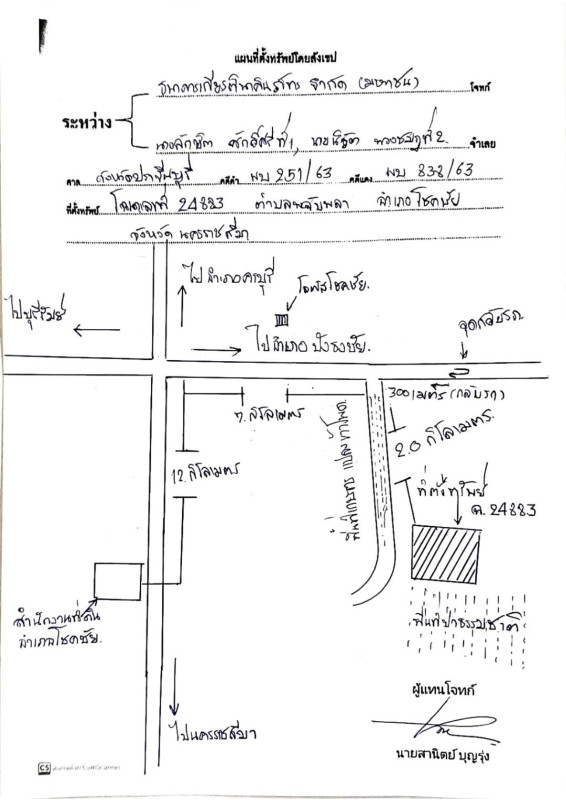 แผนที่ตั้งทรัพย์โดยสังเขป
ธนาคารเกียรตินาคินภัทร จำกัด (มหาชน) โจทก์
ระหว่าง
ที่1, ที่2 จำเลย
ศาล จังหวัดปราจีนบุรี คดีดำ ผบ 251/63 คดีแดง ผบ 838/63
ที่ตั้งทรัพย์ โฉนดเลขที่ 24883 ตำบลพลับพลา อำเภอโชคชัย
จังหวัด นครราชสีมา
ไปอำเภอครบุรี
ไปบุรีรัมย์
โลตัสโชคชัย.
จุดกลับรถ
ไปอำเภอ ปักธงชัย.
300 เมตร (กลับรถ)
7. กิโลเมตร
2.0 กิโลเมตร.
12. กิโลเมตร
ที่ตั้งทรัพย์
ฉ. 24883
สำนักงานที่ดิน
อำเภอโชคชัย.
พื้นที่ป่าธรรมชาติ
ผู้แทนโจทก์
ไปนครราชสีมา
นายสานิตย์ บุญรุ่ง
CS